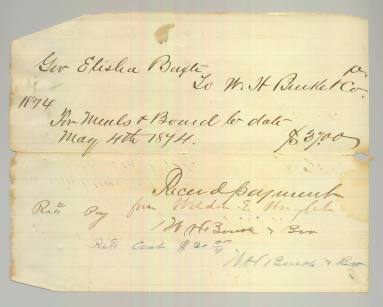 Gov Elisha Baxter Dr
To W. H. Burke & Co.
1874
For Meals & Board to date
May 4th 1874. $37.00
Received payment
Recd Pay from Wilden E.
W H Burke & Bro
Recd Cash $20.00
W H Burke & Bro